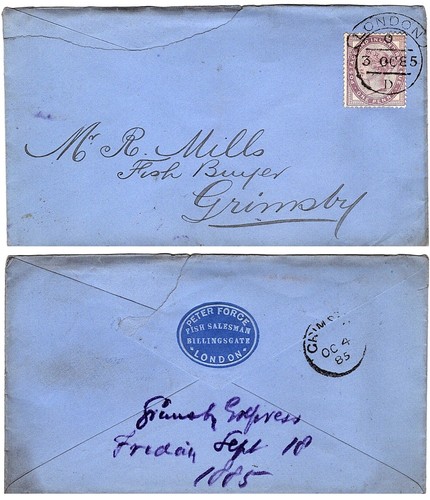 LONDON
9
3 OC 85
D
Mr. R. Mills
Fish Buyer
Grimsby
PETER FORCE
FISH SALESMAN
BILLINGSGATE
LONDON
GRIMSBY
OC 4
85
Grimsby Express
Friday Sept 18
1885